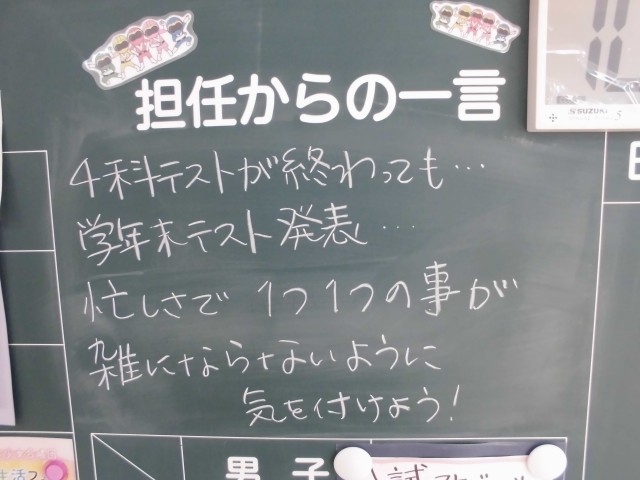 担任からの一言
SUZUKI
4科テストが終わっても…
学年末テスト発表…
忙しさで 1つ1つの事が
雑にならなないように
気を付けよう!
男子